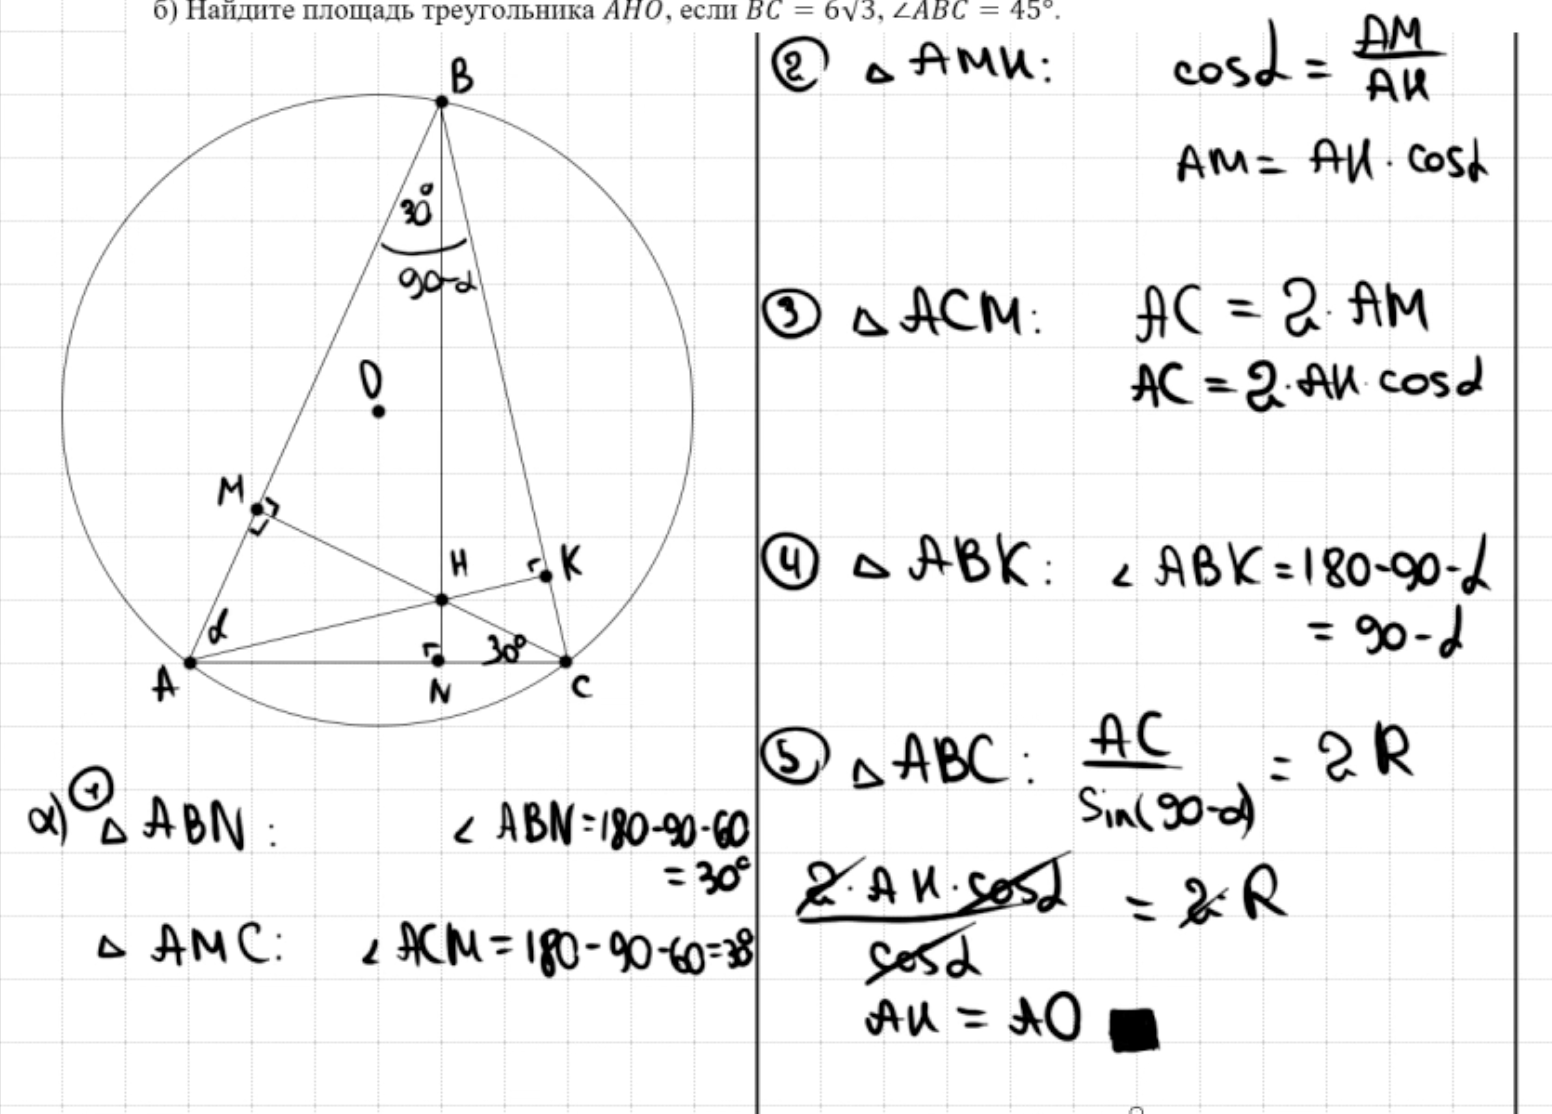 б) Найдите площадь треугольника AHO, если BC = 6√3, ∠ABC = 45°.
B
30°
90-α
O
M
H
K
α
30°
A
N
C
а) ① △ ABN: ∠ ABN=180-90-60
= 30°
△ AMC: ∠ ACM = 180-90-60=30
② △ AMH: cosα = AM/AH
AM = AH · cosα
③ △ ACM: AC = 2 · AM
AC = 2 · AH · cosα
④ △ ABK: ∠ ABK = 180-90-α
= 90-α
⑤ △ ABC: AC/Sin(90-α) = 2 R
2 · AH · cosα/cosα = 2 · R
AH = AO ■